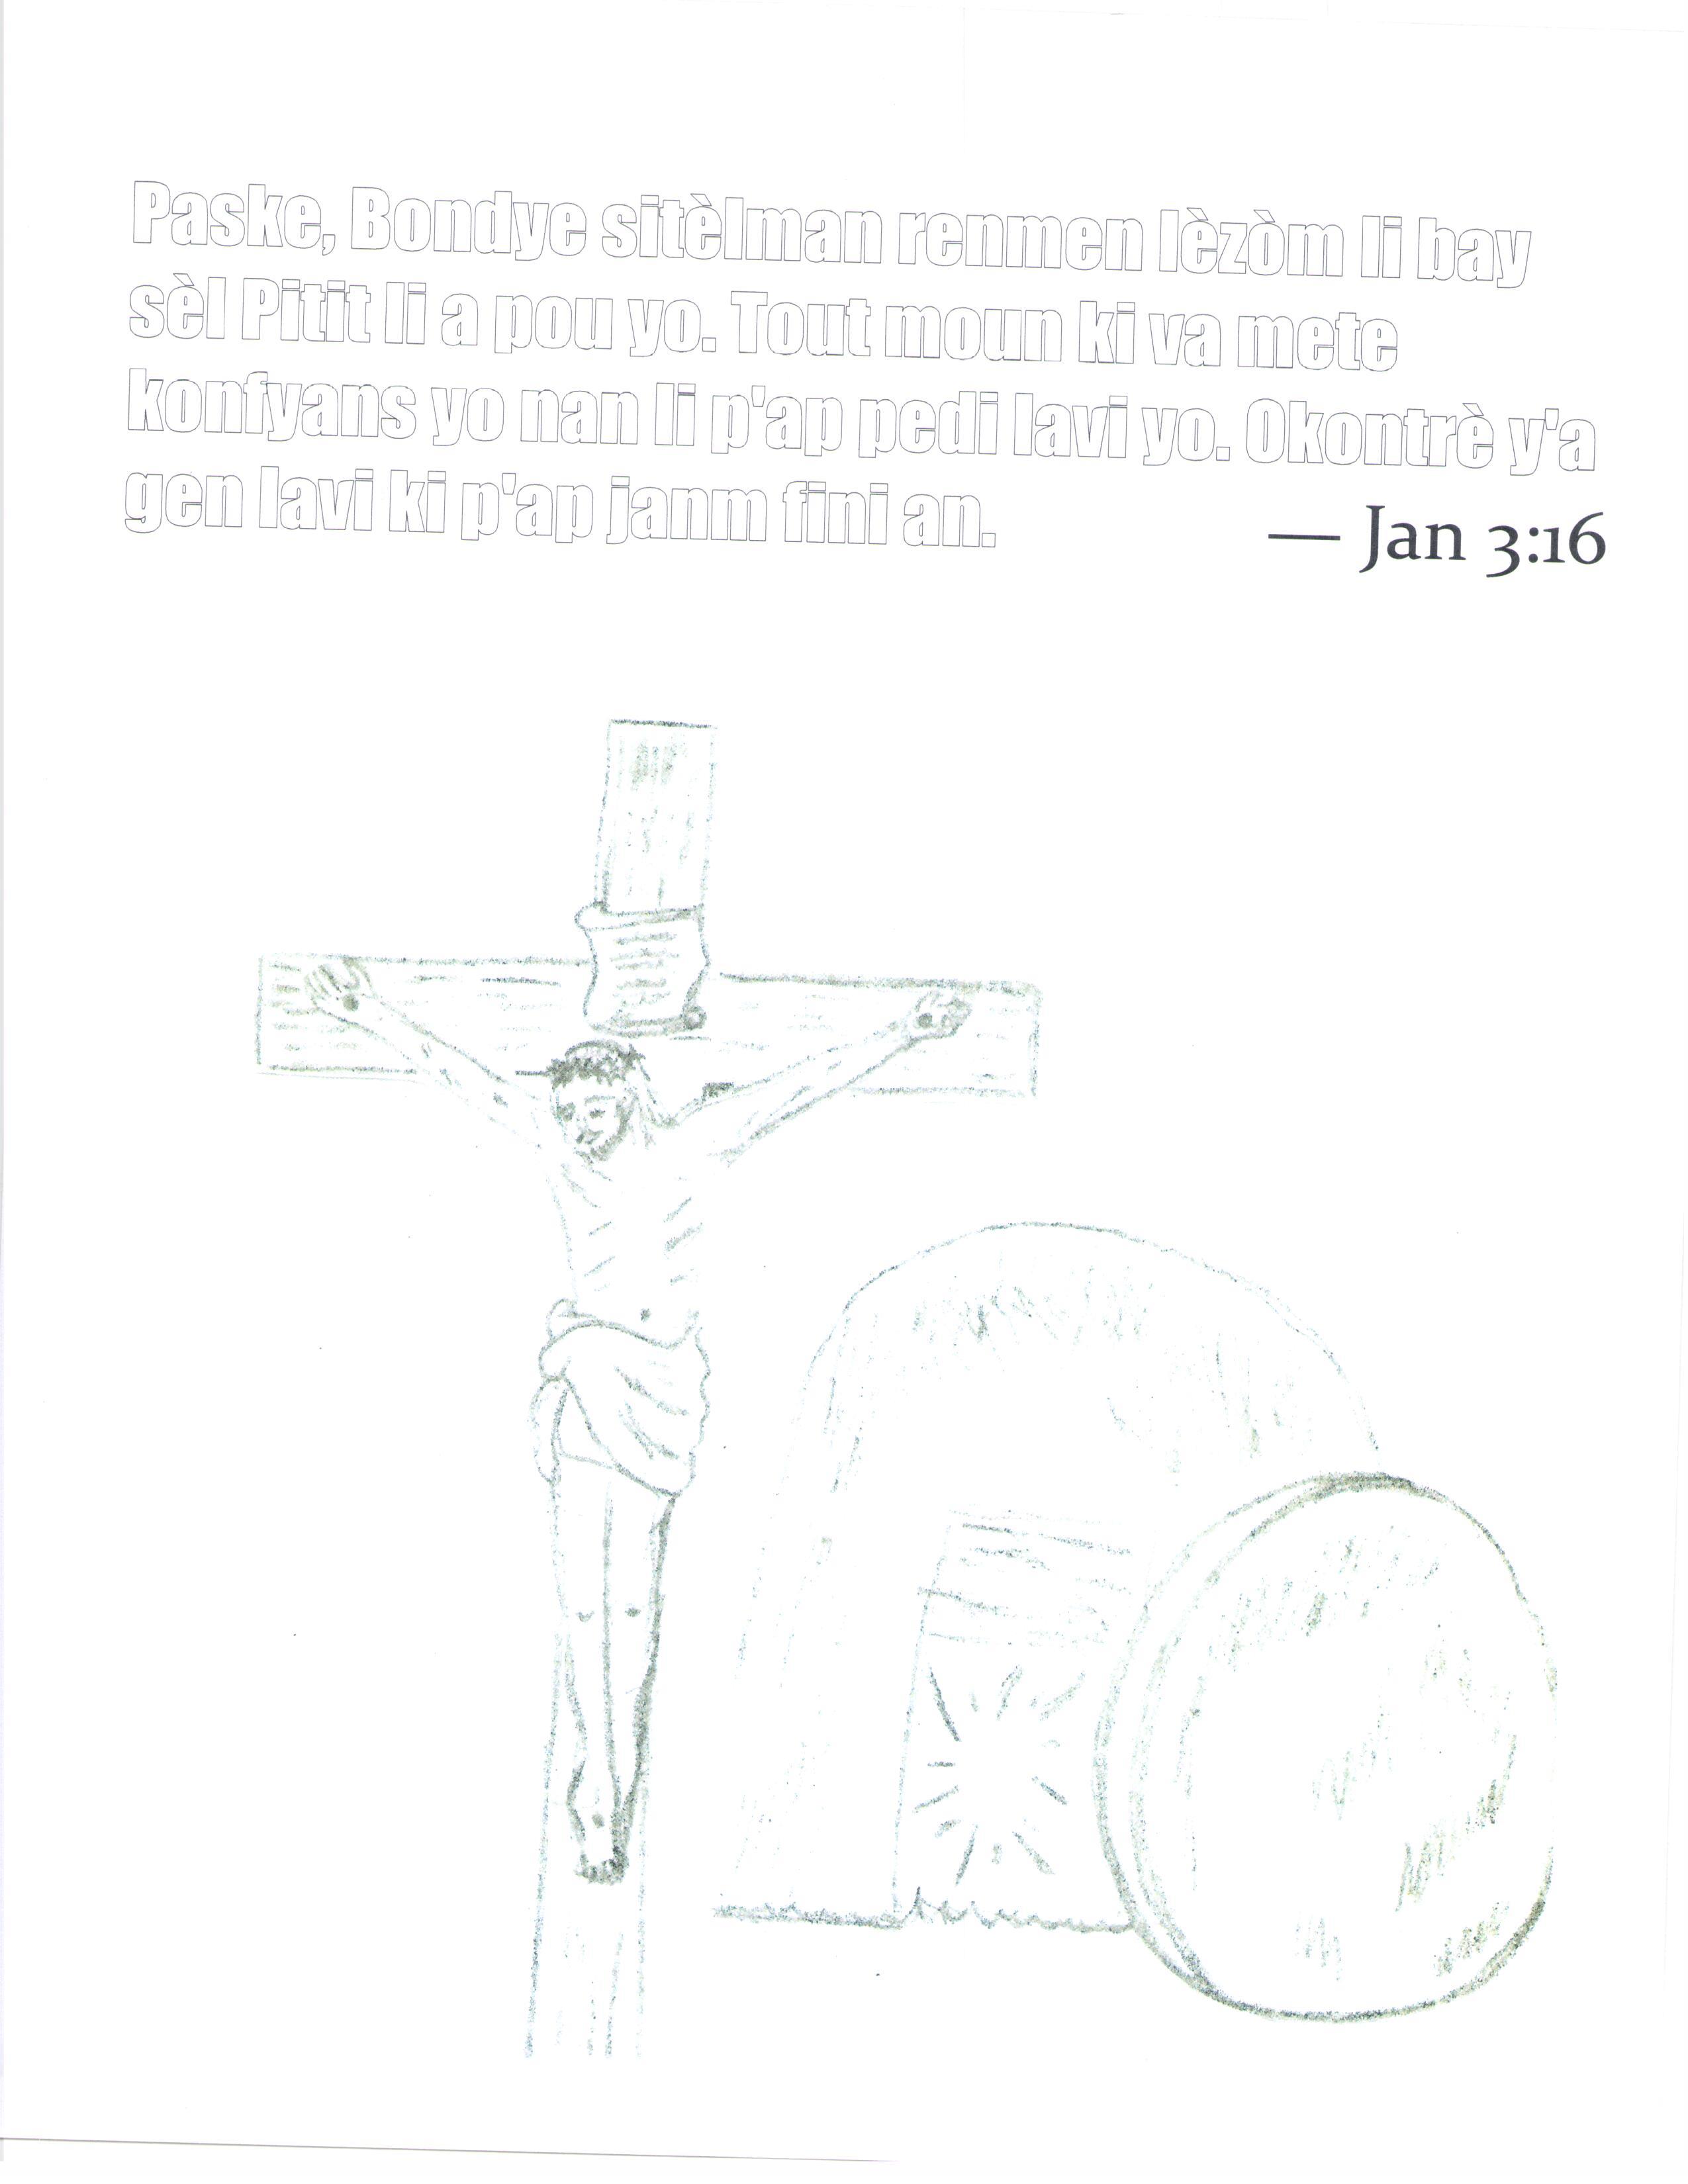 Paske, Bondye sitèlman renmen lèzòm li bay
sèl Pitit li a pou yo. Tout moun ki va mete
konfyans yo nan li p'ap pedi lavi yo. Okontrè y'a
gen lavi ki p'ap janm fini an.
— Jan 3:16